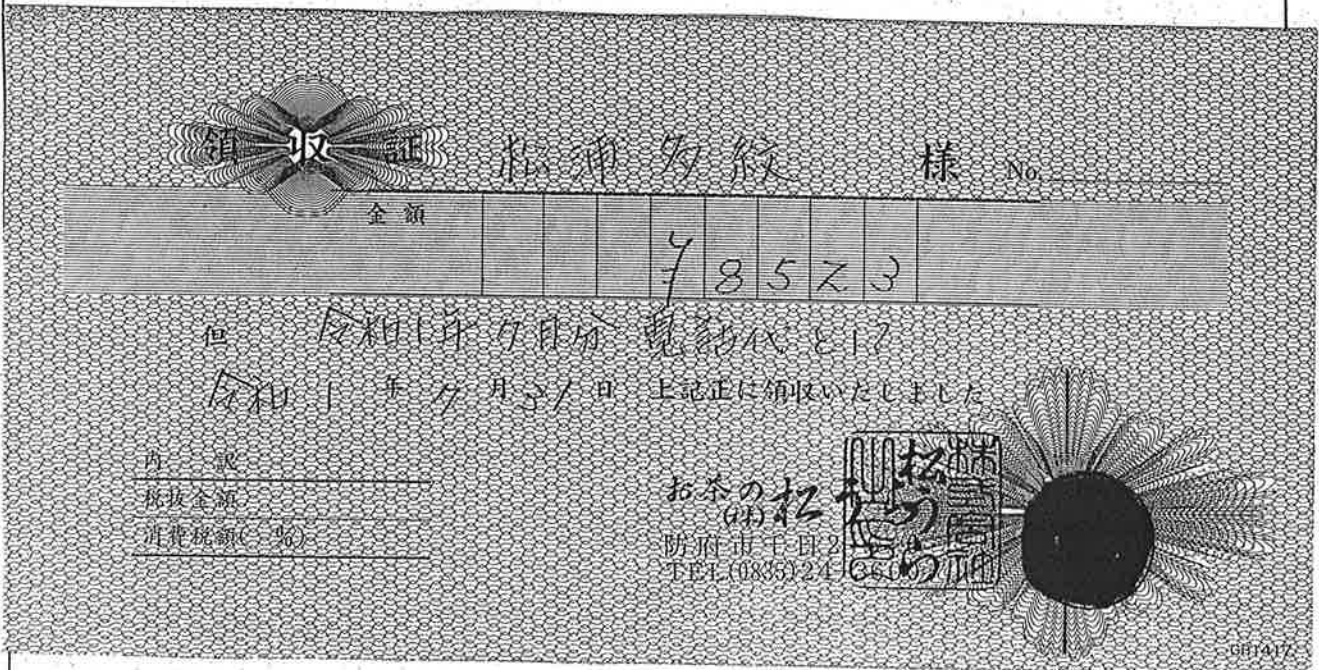 領収証 松浦多紋 様 No.
金額 ¥8523
但 令和1年7月分 電話代として
令和1年7月31日 上記正に領収いたしました
内訳
税抜金額
消費税額( %)
お茶の
(株)松
防府市千日2
TEL(0835)24
GB1417